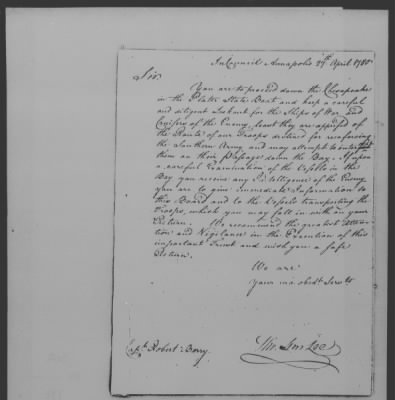 In Council Annapolis 27th April 1780
Sir
You are to proceed down the Chesapeake
in the Plater State Boat and keep a careful
and diligent Lookout for the Ships of War and
Cruisers of the Enemy, least they are apprised of
the Route of our Troops destined for reinforcing
the Southern Army and may attempt to intercept
them on their Passage down the Bay. If upon
a careful Examination of the Vessels in the
Bay you receive any Intelligence of the Enemy
you are to give immediate Information to
this Board and to the Vessels transporting the
Troops, which you may fall in with on your
Return. We recommend the greatest Atten-
tion and Vigilance in the Execution of this
important Trust and wish you a safe
Return.
We are
Your mo obedt Servts
Capt. Robert Berry
Tho. Sim Lee